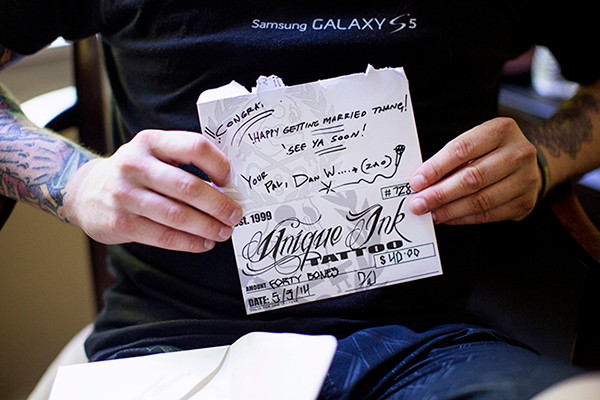 Samsung GALAXY S5
CONGRA.
HAPPY GETTING MARRIED THANG!
SEE YA SOON!
YOUR PAL, DAN W....+(2NO)
#728
EST. 1999
Unique Ink
TATTOO
$40.00
AMOUNT FORTY BONES
DATE: 5/3/14